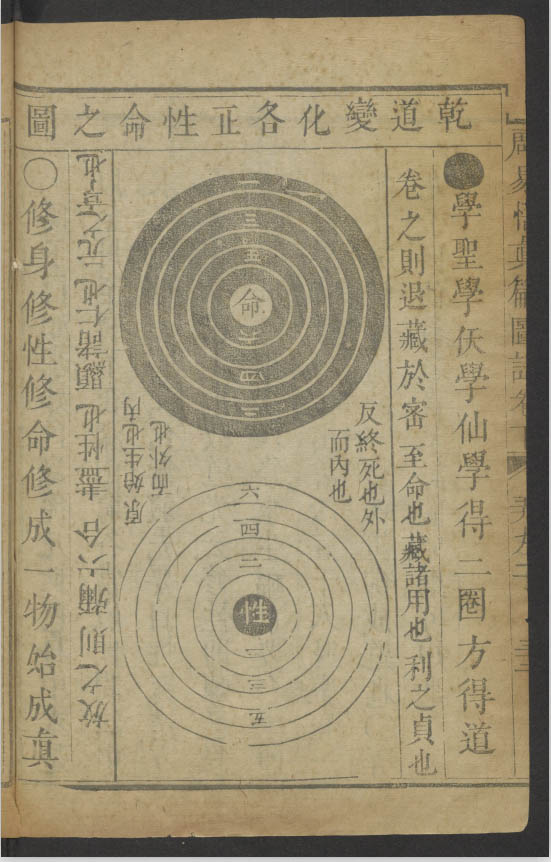 乾道變化各正性命之圖
學聖學仸學仙學得二圈方得道
卷之則退藏於密至命也藏諸用也利之貞也
反終死也外
而內也
命
六
四
二
性
一
三
五
原始生也內
而外也
放之則彌六合盡性也顯諸仁也元之亨也
修身修性修命修成一物始成眞
周易悟眞篇圖註卷